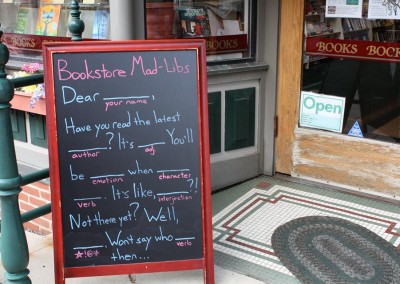 Bookstore Mad-Libs
Dear ______,
your name
Have you read the latest
____? It's ___ You'll
author adj
be ____ when ____
emotion character
____. It's like, ____?!
verb interjection
Not there yet? Well,
____. Won't say who ___
*!@* verb
then...
BOOKS
BOOKS BOOK
Open